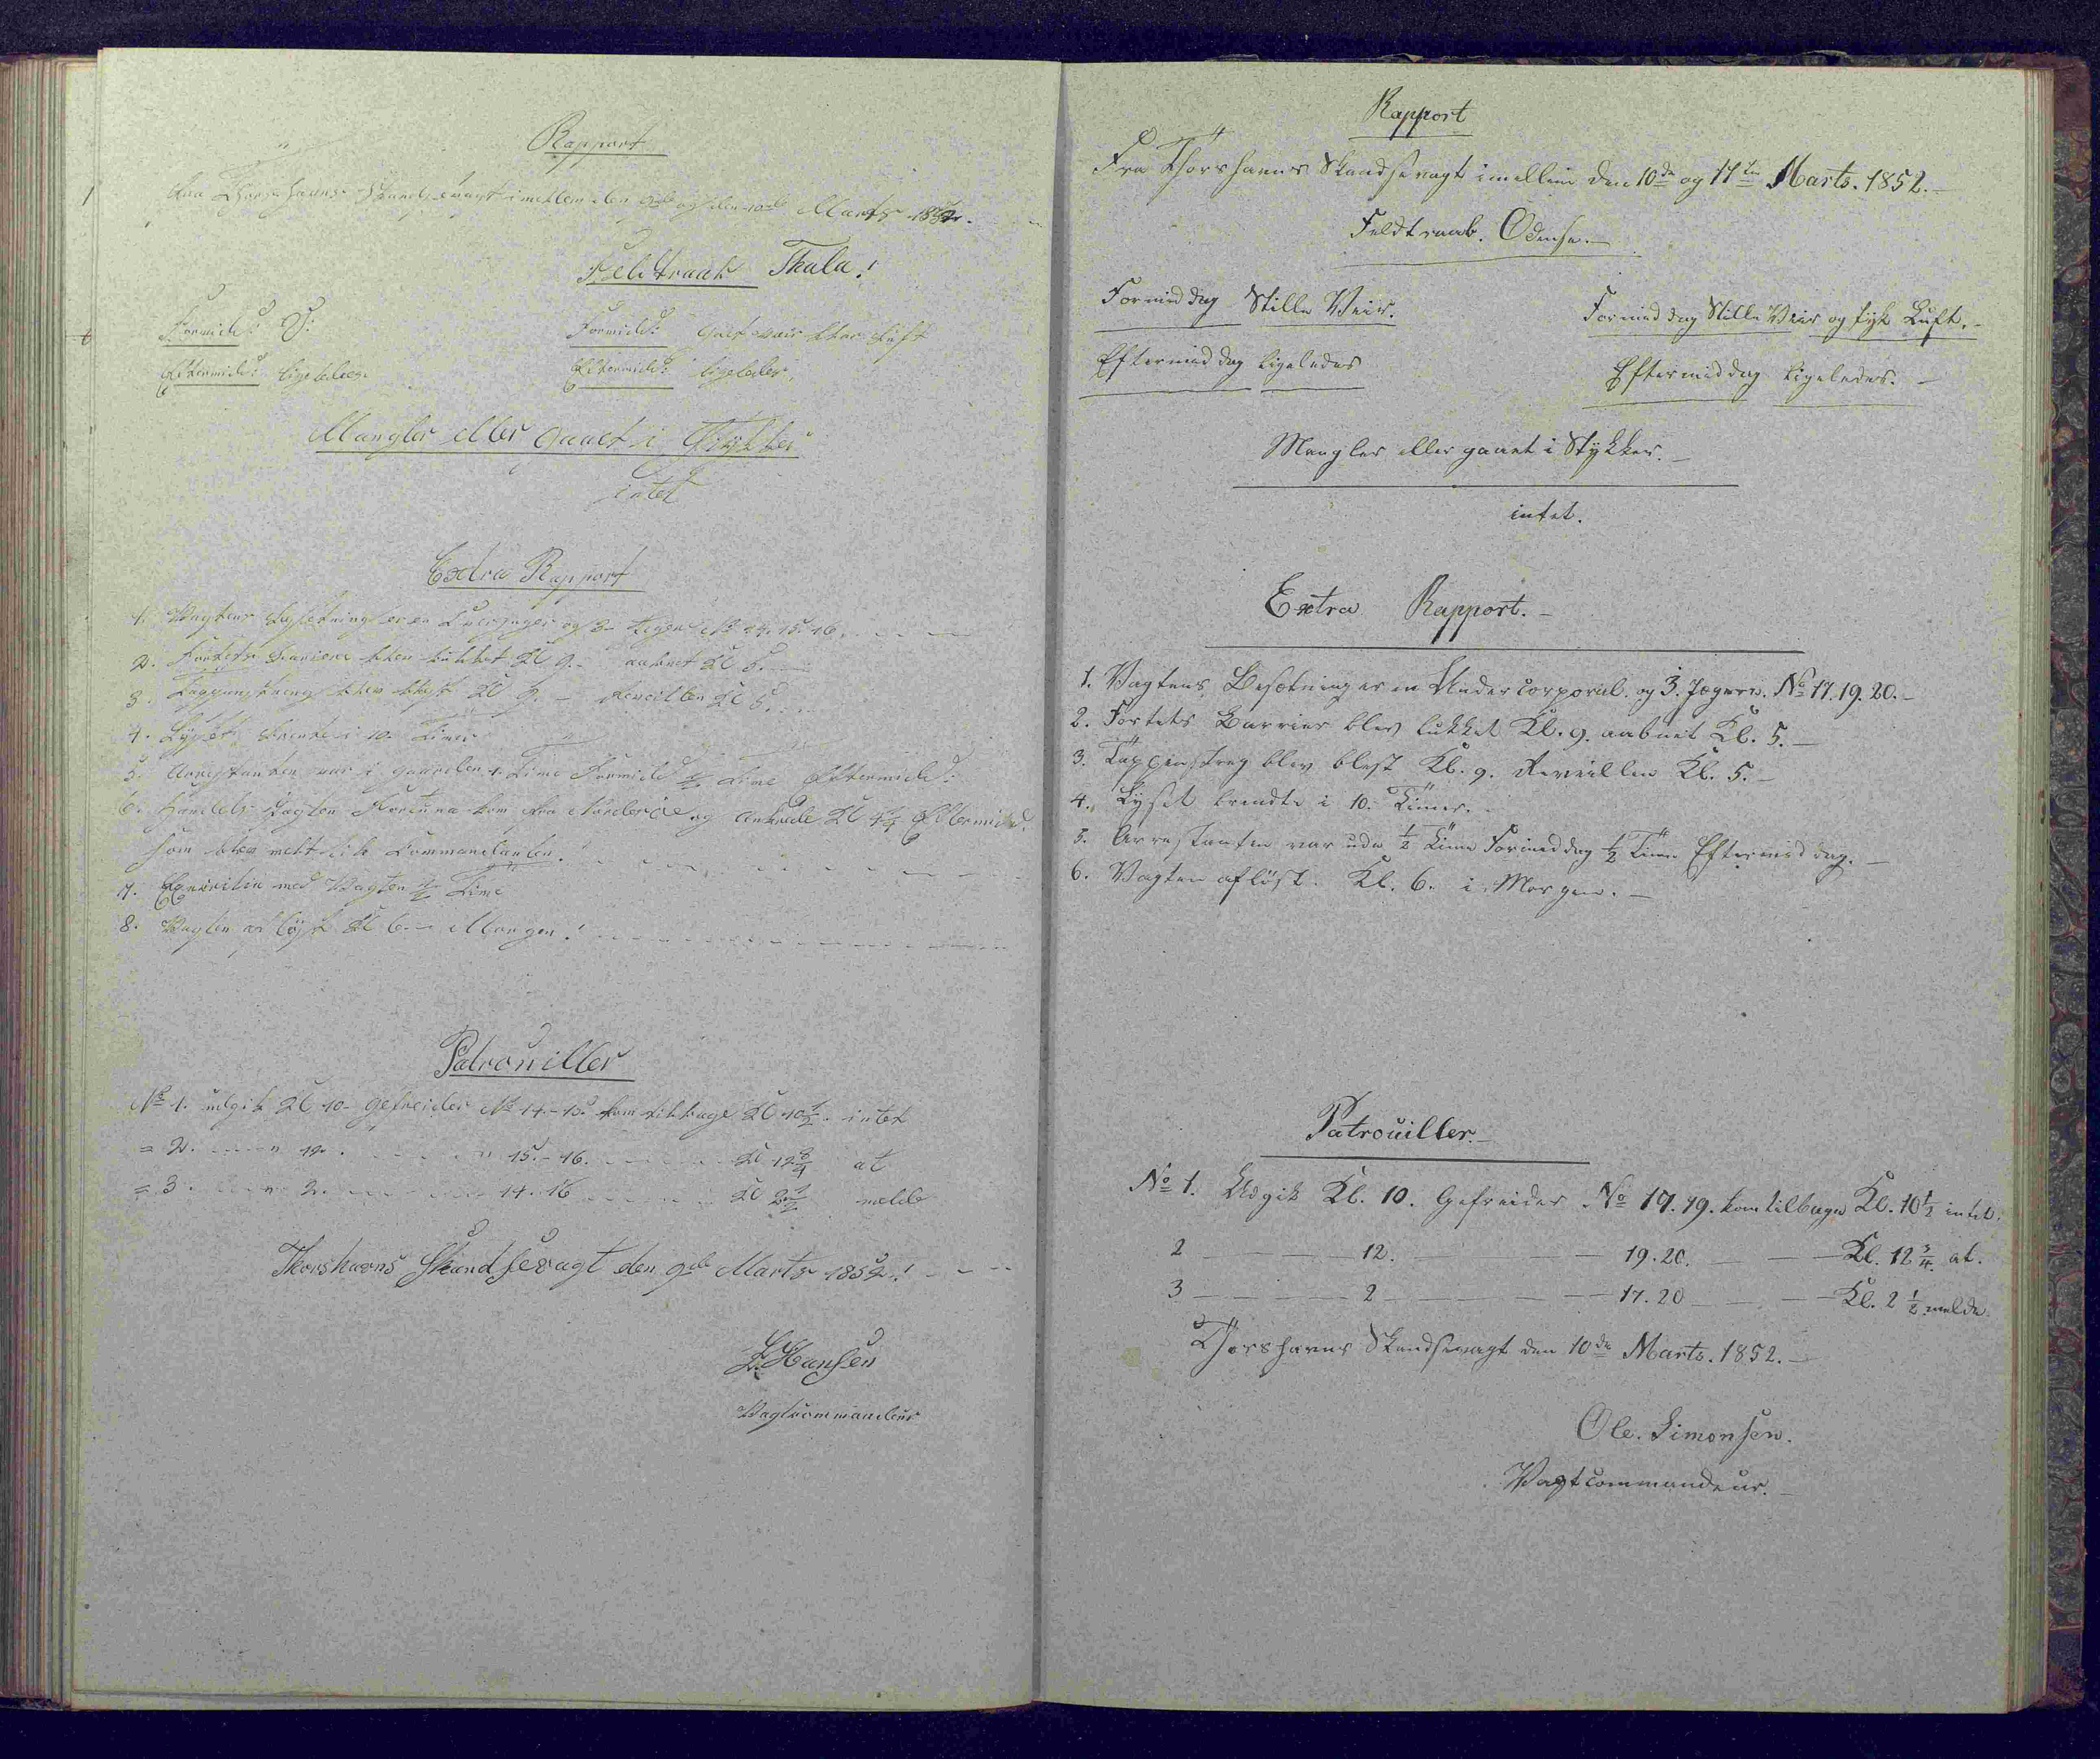 Rapport
Fra Thorshavns Skandsevagt imellem den 9de og den 10de Marts 1852.
Feltraab Thala!
Formid: O:
Formid: Klar Luft
Eftermid: ligeledes
Eftermid: ligeledes,
Mangler eller gaaet i Stykker
intet
Extra Rapport
1. Vagtens Besetning er en og 3 Jegere No 14. 15. 16.
2. Fortets Bariere blev lukket Kl 9. aabnet Kl 5.
3. Tappenstreg blev blest Kl 9. Reveillen Kl 5.
4. Lyset brente i 10 Timer
5. Arrestanten var i gaarden 1 Time Formid 1/2 Time Eftermid:
6. Handels Jagten Fortuna kom fra Norderöe og Ankrede Kl 4 1/4 Eftermid.
som blev meldt til Commandanten.
7. Exersitie med Vagten 1/2 Time
8. Vagten aflöst Kl 6 Morgen!
Patrouiller
No 1. udgik Kl 10 Gefreider No 14-15 kom tilbage Kl 10 1/2 intet
= 2. " 12. " 15.-16. Kl 12 3/4 at
= 3. " 2. 14.16 Kl 2 1/2 melde
Thorshavns Skandsevagt den 9de Marts 1852!
Hansen
Vagtcommandeur
Rapport
Fra Thorshavns Skandsevagt imellem den 10de og 11te Marts. 1852.-
Feldtraab. Odense.-
Formiddag Stille Veir.
Formiddag Stille Veir og tyk Luft.-
Eftermiddag ligeledes
Eftermiddag ligeledes.-
Mangler eller gaaet i Stykker.-
intet.
Extra Rapport.-
1. Vagtens Besetning er en Undercorporal. og 3. Jegere. No 17. 19. 20.-
2. Fortets Barrier blev lukket Kl. 9. aabnet Kl. 5.-
3. Tappenstreg blev blest Kl. 9. Reveillen Kl. 5.-
4. Lyset brendte i 10. Timer.-
5. Arrestanten var ude 1/2 Time Formiddag 1/2 Time Eftermiddag.-
6. Vagten aflöst. Kl. 6. i Morgen.-
Patrouiller.-
No 1. Udgik Kl. 10. Gefreider No 17. 19. kom tilbage Kl. 10 1/2 intet.
2 12. 19. 20. Kl. 12 3/4 at.
3 2 17. 20 Kl. 2 1/2 melde
Thorshavns Skandsevagt den 10de Marts. 1852.-
Ole. Simonsen.
Vagtcommandeur.-